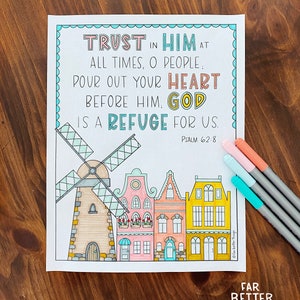 TRUST IN HIM AT
ALL TIMES, O PEOPLE,
POUR OUT YOUR HEART
BEFORE HIM, GOD
IS A REFUGE FOR US.
PSALM 62:8
FAR
BETTER